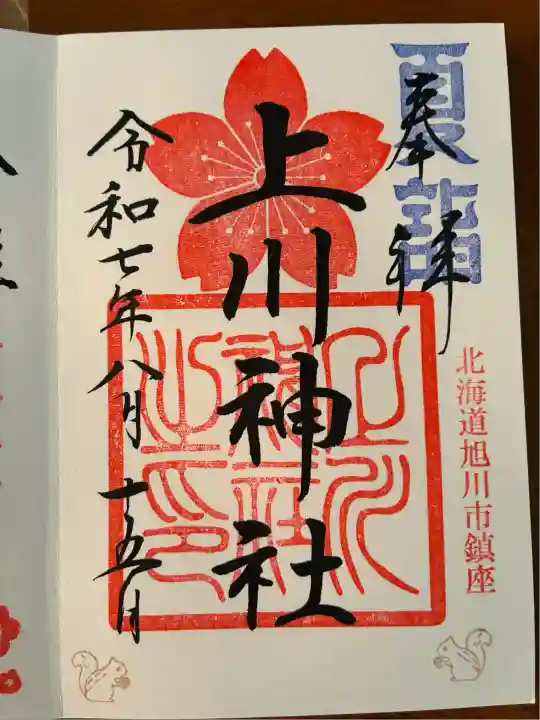 奉拝
夏詣
北海道旭川市鎮座
上川神社
上川神社之印
令和七年八月十五日